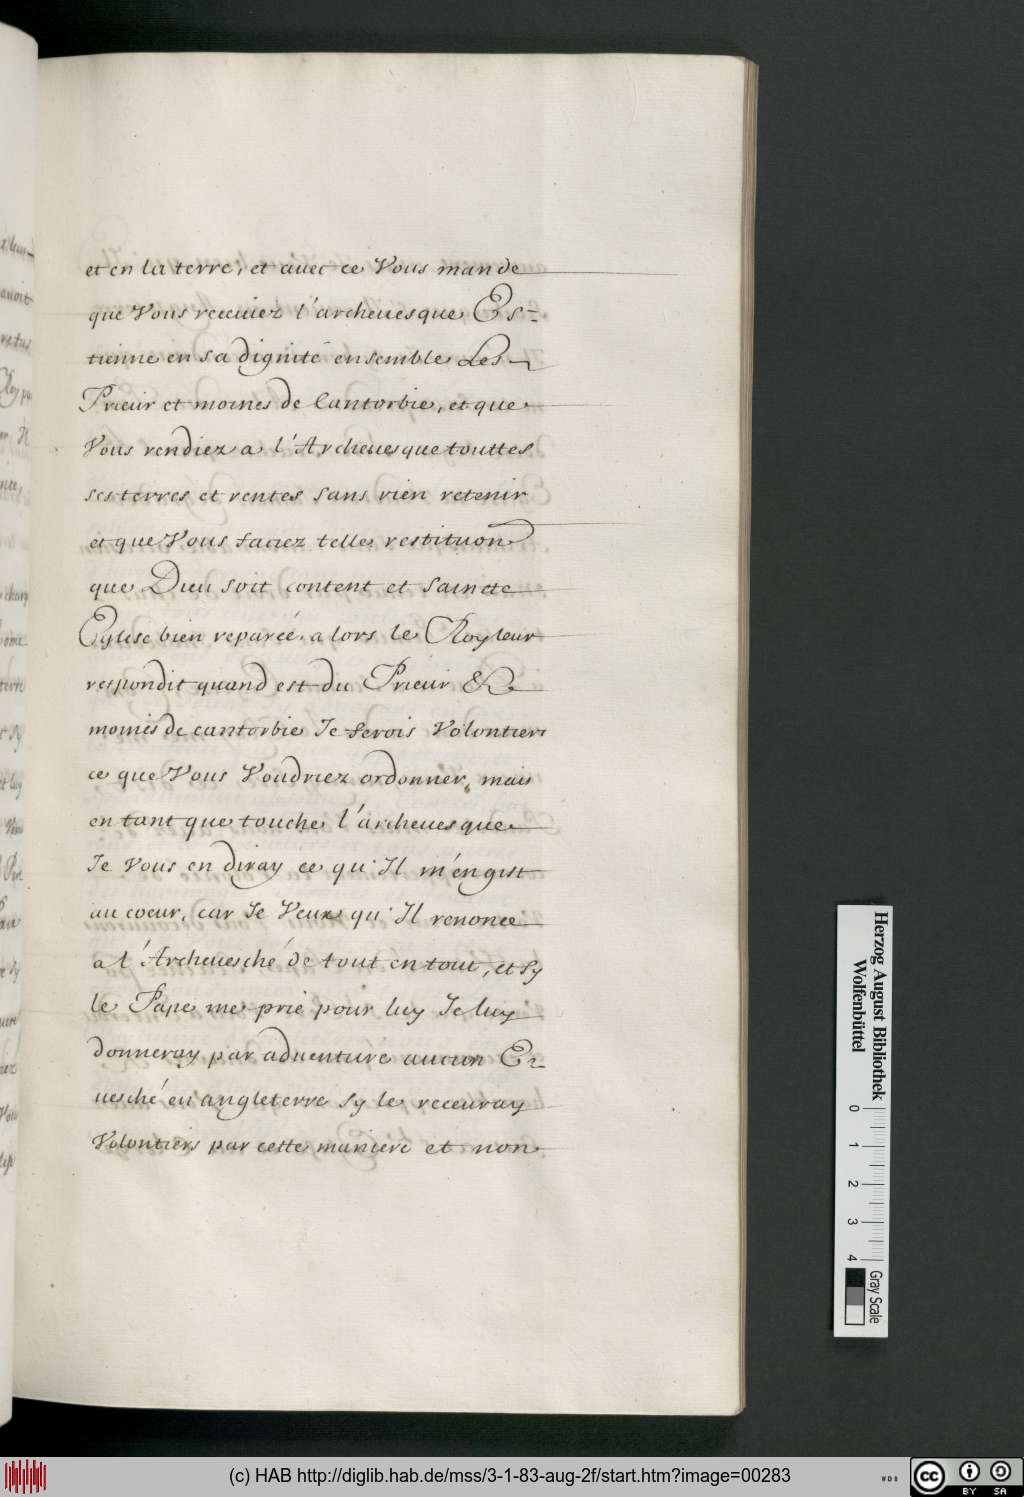 et en la terre, et auec ce Vous mande
que Vous receuiez l'archeuesque Es=
tienne en sa dignité ensemble Les
Prieur et moines de Cantorbie, et que
Vous rendiez a l'Archeuesque touttes
ses terres et rentes sans rien retenir
et que Vous faciez telle restituon
que Dieu soit content et saincte
Eglise bien reparéé. alors le Roy leur
respondit quand est du Prieur &
moines de cantorbie Je ferois Volontiers
ce que Vous Voudriez ordonner, mais
en tant que touche l'archeuesque
Je Vous en diray ce qu'Il m'en gist
au coeur, car Je Veux qu'Il renonce
a l'Archeuesché de tout en tout, et sy
le Pape me prie pour luy Je luy
donneray par aduenture aucun Er=
uesché en angleterre sy le receuray
Volontiers par cette maniere et non
Herzog August Bibliothek
Wolfenbüttel
0 1 2 3 4
Gray Scale
(c) HAB http://diglib.hab.de/mss/3-1-83-aug-2f/start.htm?image=00283
WDB
cc BY SA